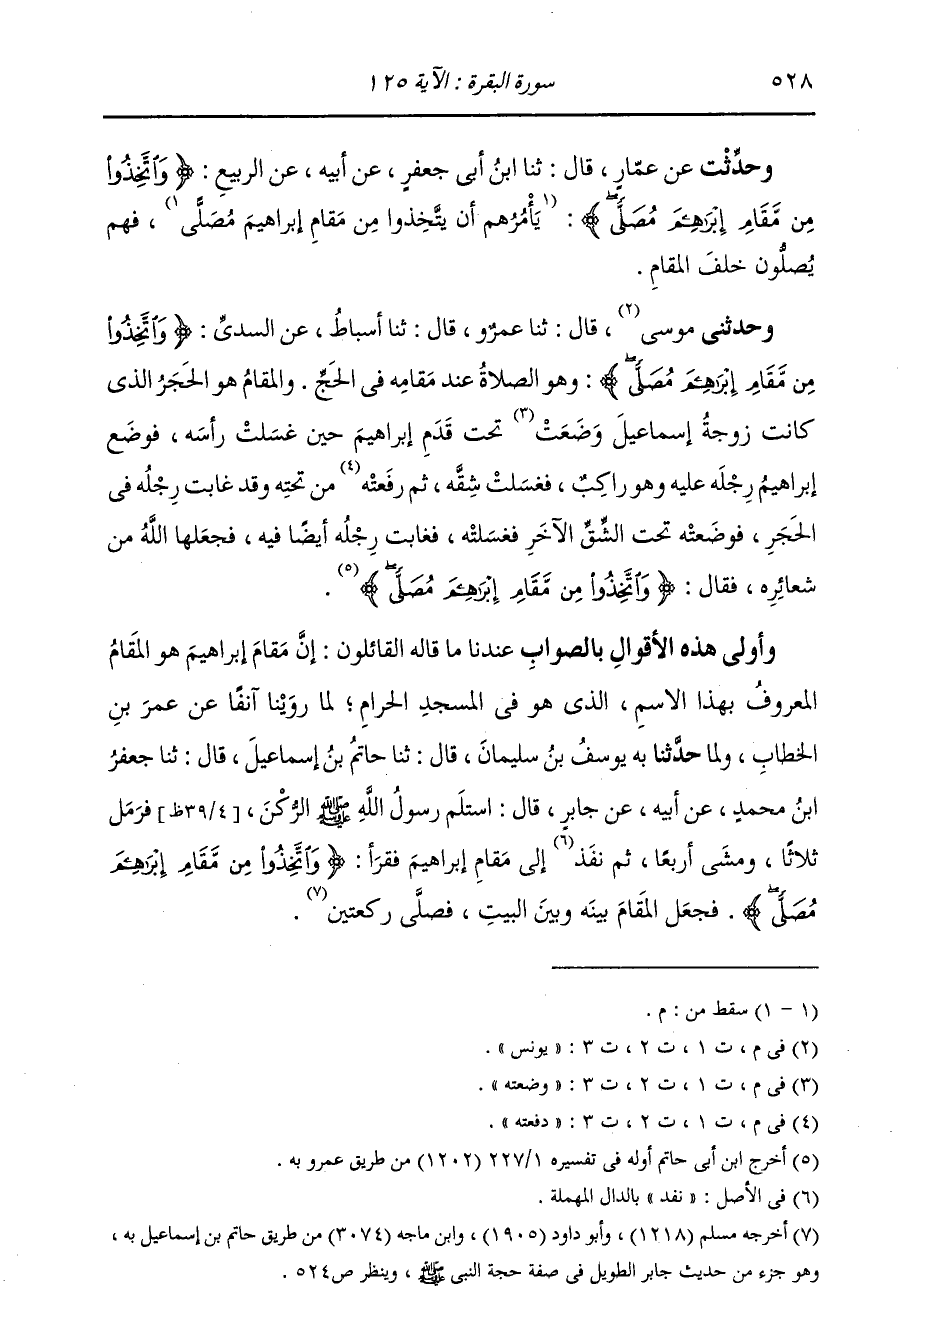 ٥٢٨ سورة البقرة : الآية ١٢٥
وحدِّثْت عن عمّارٍ ، قال : ثنا ابنُ أبى جعفرٍ ، عن أبيه ، عن الربيعِ : ﴿ وَٱتَّخِذُوا۟
مِن مَّقَامِ إِبْرَٰهِـۧمَ مُصَلًّىۖ ﴾ : (١)يَأْمُرُهم أن يتَّخِذوا مِن مَقامِ إبراهيمَ مُصَلًّى(١) ، فهم
يُصلُّون خلفَ المقامِ .
وحدثنى موسى(٢) ، قال : ثنا عمرٌو ، قال : ثنا أسباطُ ، عن السدىِّ : ﴿ وَٱتَّخِذُوا۟
مِن مَّقَامِ إِبْرَٰهِـۧمَ مُصَلًّىۖ ﴾ : وهو الصلاةُ عند مَقامِه فى الحَجِّ . والمقامُ هو الحَجَرُ الذى
كانت زوجةُ إسماعيلَ وَضَعَتْ(٣) تحت قَدَمِ إبراهيمَ حين غسَلتْ رأسَه ، فوضَع
إبراهيمُ رِجْلَه عليه وهو راكِبٌ ، فغسَلتْ شِقَّه ، ثم رفَعتْه(٤) من تحتِه وقد غابت رِجْلُه فى
الحَجَرِ ، فوضَعتْه تحت الشِّقِّ الآخَرِ فغسَلتْه ، فغابت رِجْلُه أيضًا فيه ، فجعَلها اللَّهُ من
شعائِرِه ، فقال : ﴿ وَٱتَّخِذُوا۟ مِن مَّقَامِ إِبْرَٰهِـۧمَ مُصَلًّىۖ ﴾(٥) .
وأولى هذه الأقوالِ بالصوابِ عندنا ما قاله القائلون : إنَّ مَقامَ إبراهيمَ هو المَقامُ
المعروفُ بهذا الاسمِ ، الذى هو فى المسجدِ الحرامِ ؛ لما روَيْنا آنفًا عن عمرَ بنِ
الخطابِ ، ولما حدَّثنا به يوسفُ بنُ سليمانَ ، قال : ثنا حاتمُ بنُ إسماعيلَ ، قال : ثنا جعفرُ
ابنُ محمدٍ ، عن أبيه ، عن جابرٍ ، قال : استلَم رسولُ اللَّهِ ﷺ الرُّكْنَ ، [٣٩/٤ظ] فرَمَل
ثلاثًا ، ومشَى أربعًا ، ثم نفَذ(٦) إلى مَقامِ إبراهيمَ فقرَأ : ﴿ وَٱتَّخِذُوا۟ مِن مَّقَامِ إِبْرَٰهِـۧمَ
مُصَلًّىۖ ﴾ . فجعَل المَقامَ بينَه وبينَ البيتِ ، فصلَّى ركعتين(٧) .
(١ - ١) سقط من : م .
(٢) فى م ، ت ١ ، ت ٢ ، ت ٣ : « يونس » .
(٣) فى م ، ت ١ ، ت ٢ ، ت ٣ : « وضعته » .
(٤) فى م ، ت ١ ، ت ٢ ، ت ٣ : « دفعته » .
(٥) أخرج ابن أبى حاتم أوله فى تفسيره ٢٢٧/١ (١٢٠٢) من طريق عمرو به .
(٦) فى الأصل : « نفد » بالدال المهملة .
(٧) أخرجه مسلم (١٢١٨) ، وأبو داود (١٩٠٥) ، وابن ماجه (٣٠٧٤) من طريق حاتم بن إسماعيل به ،
وهو جزء من حديث جابر الطويل فى صفة حجة النبى ﷺ ، وينظر ص٥٢٤ .